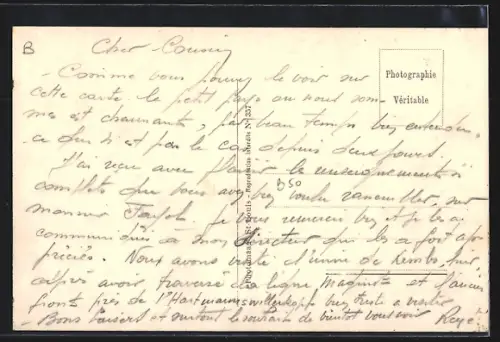 B
Cher Cousin
- Comme vous pouvez le voir sur
cette carte le petit pays ou nous som-
mes est charmant, par beau temps bien entendu
ce qui n'est pas le cas depuis deux jours.
J'ai reçu avec plaisir les renseignements si
complets que vous avez bien voulu sur
monsieur Je vous remercie bien et je les ai
communiqués à mon directeur qui les a fort ap-
préciés. Nous avons visité l'usine de
après avoir traversé la ligne et l'ancien
front près de l'Hartmannswillerkopf bien triste à visiter
- Bons baisers et surtout le souhait de bientot vous voir
B50
Photographie
Véritable
Reproduction Interdite